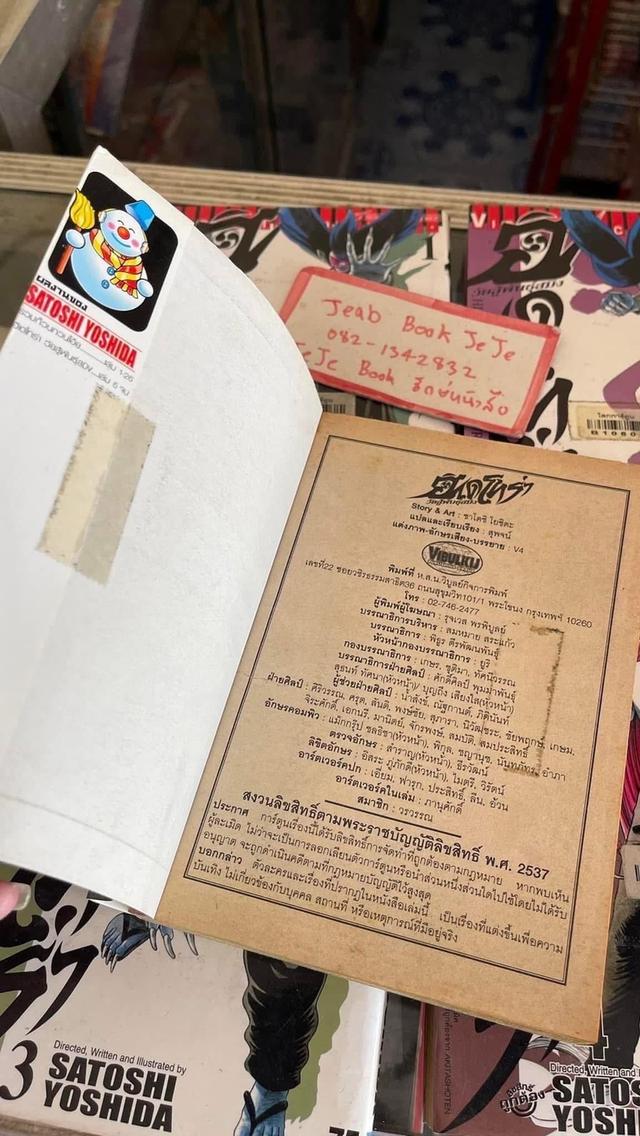 ผลงานของ
SATOSHI YOSHIDA
รวมก๊วนกวนโอ๊ย..........เล่ม 1-26
Jeab Book JeJe
082-1342832
JeJe Book
1
โลกการ์ตูน
อินดูโทร่า
Story & Art : ซาโตชิ โยชิดะ
แปลและเรียบเรียง : สุพจน์
แต่งภาพ-อักษรเสียง-บรรยาย : V4
VIBULKIJ
พิมพ์ที่ ห.ส.น.วิบูลย์กิจการพิมพ์
เลขที่22 ซอยวชิรธรรมสาธิต36 ถนนสุขุมวิท101/1 พระโขนง กรุงเทพฯ 10260
โทร : 02-746-2477
ผู้พิมพ์ผู้โฆษณา : รุจเวส พรพิบูลย์
บรรณาธิการบริหาร : สมหมาย สระแก้ว
บรรณาธิการ : พิธูร ตีรพัฒนพันธุ์
หัวหน้ากองบรรณาธิการ : ยูริ
กองบรรณาธิการ : เกษร, ชุติมา, ทัศนีวรรณ
บรรณาธิการฝ่ายศิลป์ : ศักดิ์ศิลป์ พุ่มมาพันธุ์
สุธนท์ ทัศนา(หัวหน้า)/ บุญถึง เสียงใส(หัวหน้า)
ผู้ช่วยฝ่ายศิลป์ : น้ำสังข์, ณัฐกานต์, ภิตินันท์
ฝ่ายศิลป์ : ศิริวรรณ, ศรุต, สันติ, พงษ์ชัย, สุภารา, นิวัฒชระ, ชัยพฤกษ์, เกษม,
จิระศักดิ์, เอกนรี, มานิตย์, จักรพงษ์, สมบัติ, สมประสิทธิ์
อักษรคอมพิว : แม็กกรุ๊ป ชลธิชา(หัวหน้า), พิกุล, ชญานุช, นันทภัทร, อำภา
ตรวจอักษร : สำราญ(หัวหน้า), ธีรวัฒน์
ลิขิตอักษร : อิสระ ภู่ภักดี(หัวหน้า), ไมตรี, วิรัตน์
อาร์ตเวอร์คปก : เอี่ยม, ฟารุก, ประสิทธิ์, ลืน, อ้วน
อาร์ตเวอร์คในเล่ม : ภานุศักดิ์
สมาชิก : วรวรรณ
สงวนลิขสิทธิ์ตามพระราชบัญญัติลิขสิทธิ์ พ.ศ. 2537
ประกาศ การ์ตูนเรื่องนี้ได้รับลิขสิทธิ์การจัดทำที่ถูกต้องตามกฎหมาย หากพบเห็น
ผู้ละเมิด ไม่ว่าจะเป็นการลอกเลียนตัวการ์ตูนหรือนำส่วนหนึ่งส่วนใดไปใช้โดยไม่ได้รับ
อนุญาต จะถูกดำเนินคดีตามที่กฎหมายบัญญัติไว้สูงสุด
บอกกล่าว ตัวละครและเรื่องที่ปรากฏในหนังสือเล่มนี้ เป็นเรื่องที่แต่งขึ้นเพื่อความ
บันเทิง ไม่เกี่ยวข้องกับบุคคล สถานที่ หรือเหตุการณ์ที่มีอยู่จริง
3
Directed, Written and Illustrated by
SATOSHI
YOSHIDA
4
Directed, Written and
ถูกต้อง
SATOS
YOSH